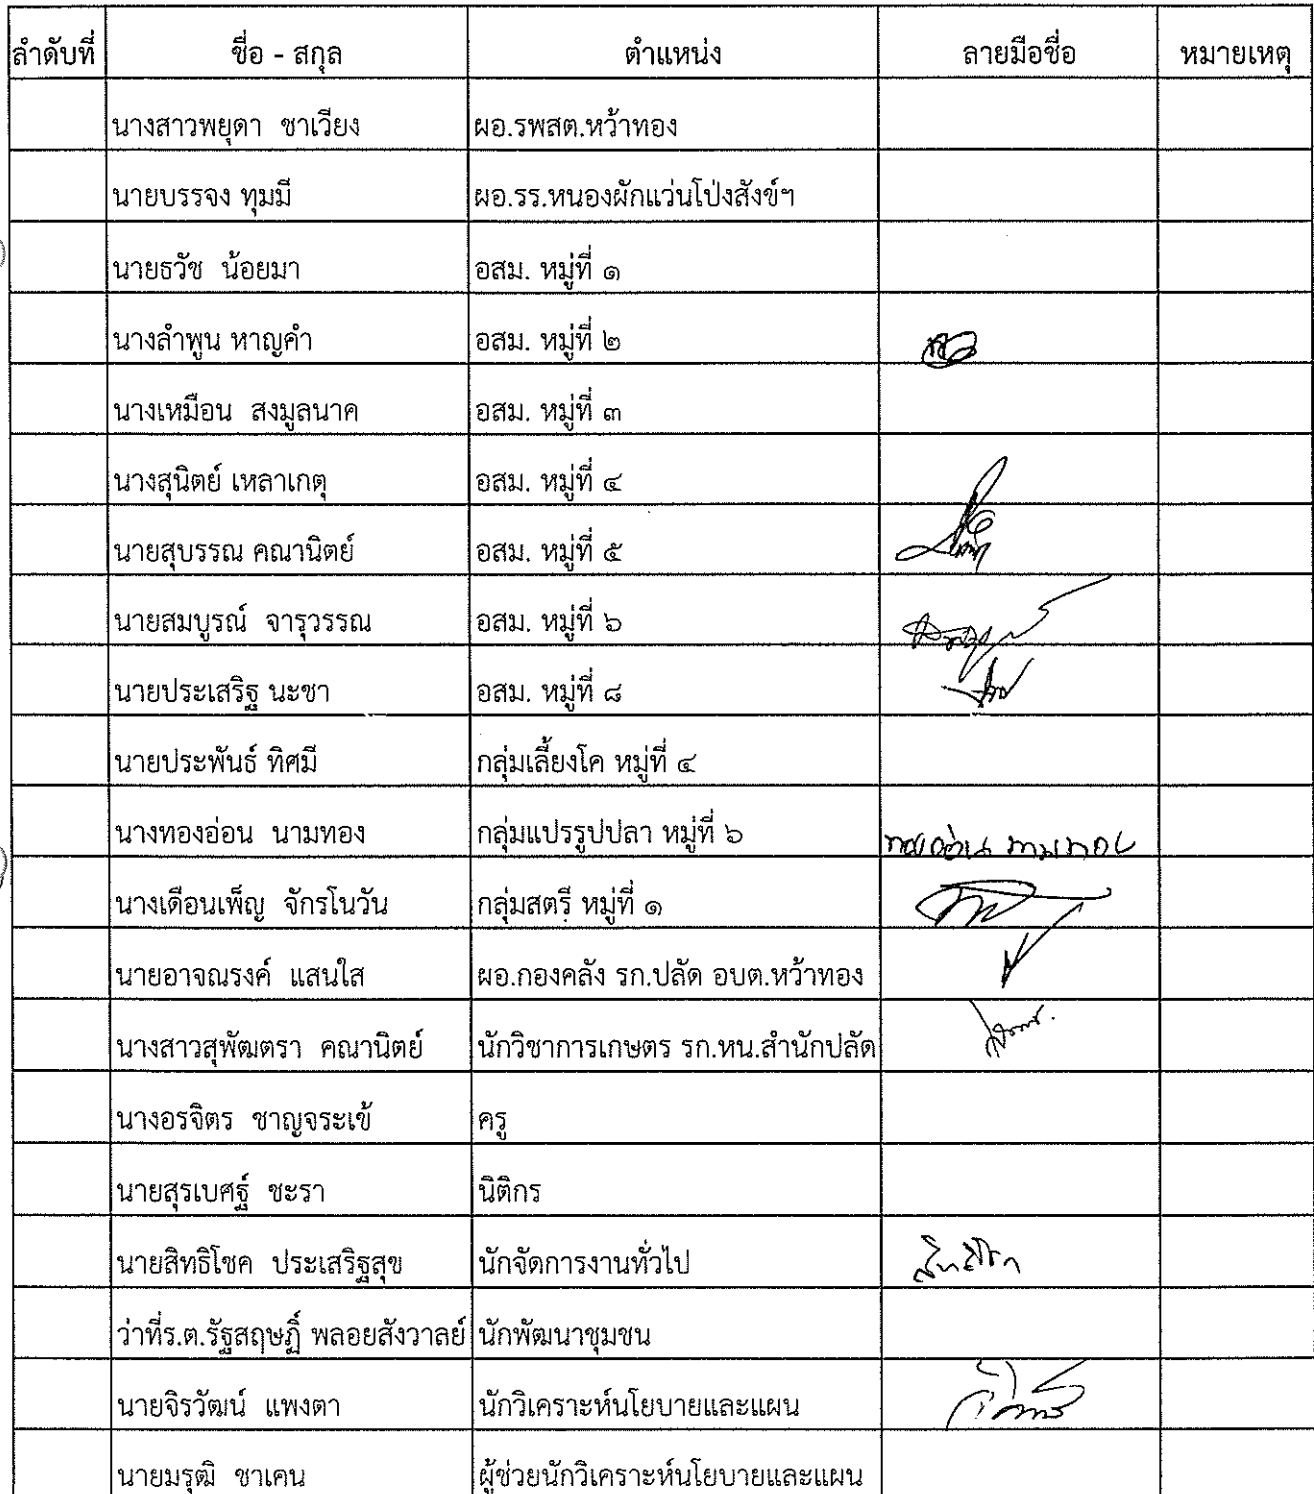 ลำดับที่ ชื่อ - สกุล ตำแหน่ง ลายมือชื่อ หมายเหตุ
นางสาวพยุดา ชาเวียง ผอ.รพสต.หว้าทอง
นายบรรจง ทุมมี ผอ.รร.หนองผักแว่นโป่งสังข์ฯ
นายธวัช น้อยมา อสม. หมู่ที่ ๑
นางลำพูน หาญคำ อสม. หมู่ที่ ๒
นางเหมือน สงมูลนาค อสม. หมู่ที่ ๓
นางสุนิตย์ เหลาเกตุ อสม. หมู่ที่ ๔
นายสุบรรณ คณานิตย์ อสม. หมู่ที่ ๕
นายสมบูรณ์ จารุวรรณ อสม. หมู่ที่ ๖
นายประเสริฐ นะชา อสม. หมู่ที่ ๘
นายประพันธ์ ทิศมี กลุ่มเลี้ยงโค หมู่ที่ ๔
นางทองอ่อน นามทอง กลุ่มแปรรูปปลา หมู่ที่ ๖ ทองอ่อน นามทอง
นางเดือนเพ็ญ จักรโนวัน กลุ่มสตรี หมู่ที่ ๑
นายอาจณรงค์ แสนใส ผอ.กองคลัง รก.ปลัด อบต.หว้าทอง
นางสาวสุพัฒตรา คณานิตย์ นักวิชาการเกษตร รก.หน.สำนักปลัด
นางอรจิตร ชาญจระเข้ ครู
นายสุรเบศฐ์ ชะรา นิติกร
นายสิทธิโชค ประเสริฐสุข นักจัดการงานทั่วไป
ว่าที่ร.ต.รัฐสฤษฎิ์ พลอยสังวาลย์ นักพัฒนาชุมชน
นายจิรวัฒน์ แพงตา นักวิเคราะห์นโยบายและแผน
นายมรุฒิ ชาเคน ผู้ช่วยนักวิเคราะห์นโยบายและแผน